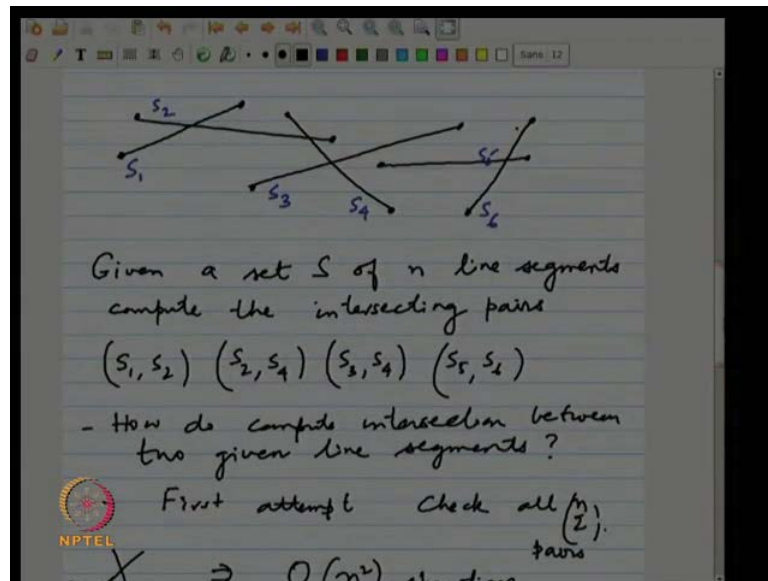 T Sans 12
S2
S1 S3 S4 S5 S6
Given a set S of n line segments
compute the intersecting pairs
(S1, S2) (S2, S4) (S3, S4) (S5, S6)
- How do compute intersection between
two given line segments ?
First attempt Check all (n 2)
pairs
NPTEL
⇒ O(n²)